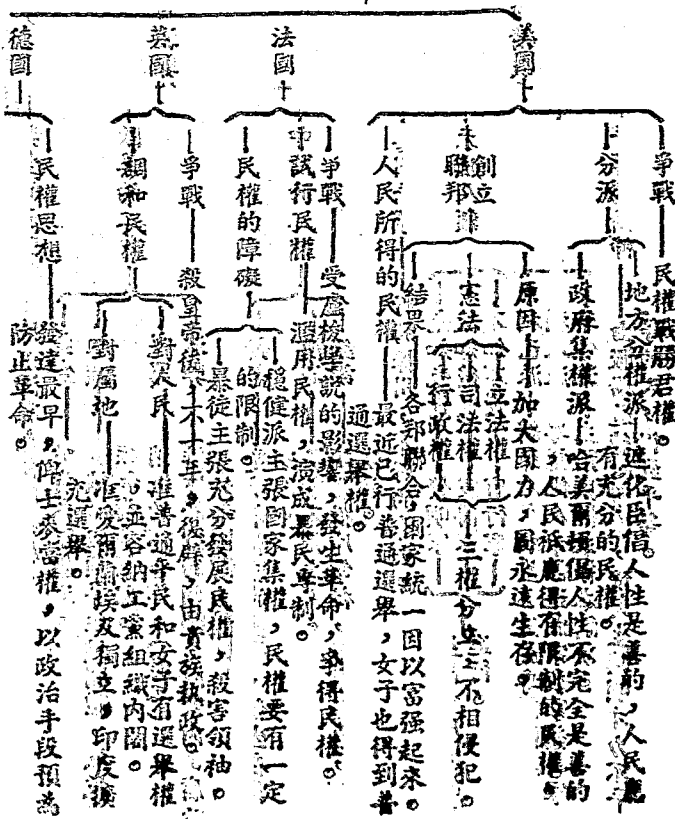 美國
爭戰
民權戰勝君權。
分派
地方分權派
遮化臣倡人性是善的，人民應
有充分的民權。
政府集權派
哈美爾頓倡人性不完全是善的
，人民祇應得有限制的民權。
創立
聯邦
原因
加大國力，圖永遠生存。
憲法
立法權
司法權
行政權
三權分立，不相侵犯。
結果
各邦聯合，國家統一因以富强起來。
人民所得的民權
最近已行普通選舉，女子也得到普
通選舉權。
法國
爭戰
受盧梭學說的影響，發生革命，爭得民權。
試行民權
濫用民權，演成暴民專制。
民權的障礙
穩健派主張國家集權，民權要有一定
的限制。
暴徒主張充分發展民權，殺害領袖。
英國
爭戰
殺皇帝後，不十年，復辟，由貴族執政。
調和民權
對人民
准普通平民和女子有選舉權
，並容納工黨組織內閣。
對屬地
准愛爾蘭埃及獨立，印度擴
充選舉。
德國
民權思想
發達最早，俾士麥當權，以政治手段預為
防止革命。